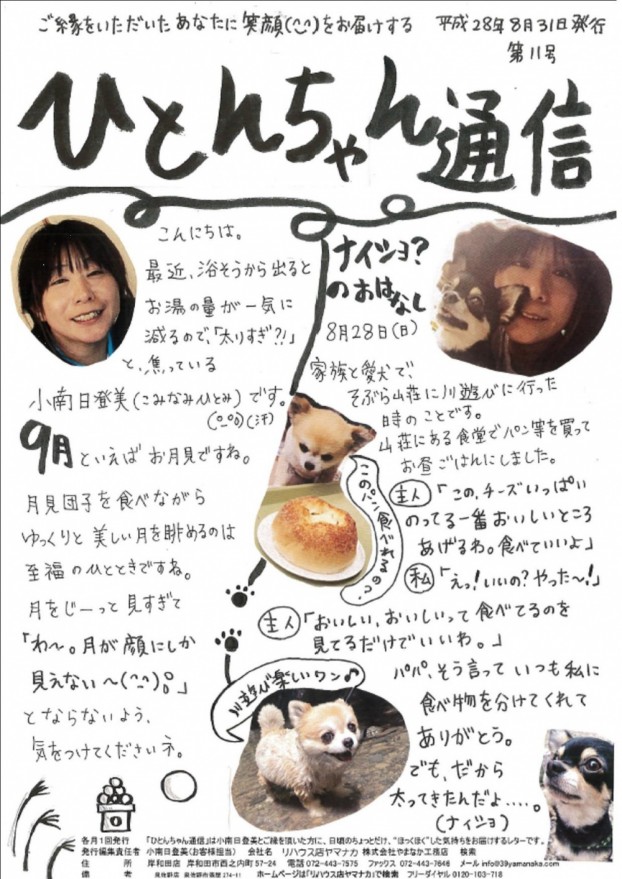 ご縁をいただいたあなたに笑顔(^-^)をお届けする
平成28年8月31日発行
第11号
ひとんちゃん通信
こんにちは。
最近、浴そうから出ると
お湯の量が一気に
減るので、「太りすぎ?!」
と、焦っている
小南日登美(こみなみひとみ)です。
(^o^;)(汗)
9月といえばお月見ですね。
月見団子を食べながら
ゆっくりと美しい月を眺めるのは
至福のひとときですね。
月をじーっと見すぎて
「わ〜。月が顔にしか
見えない〜(^-^)。」
とならないよう、
気をつけてくださいネ。
ナイショ?
のおはなし
8月28日(日)
家族と愛犬で、
そぶら山荘に川遊びに行った
時のことです。
山荘にある食堂でパン等を買って
お昼ごはんにしました。
主人「この、チーズいっぱい
のってる一番おいしいところ
あげるわ。食べていいよ」
私「えっ!いいの?やった〜!」
このパン食べれるの?
主人「おいしい、おいしいって食べてるのを
見てるだけでいいわ。」
川遊び楽しいワン♪
パパ、そう言っていつも私に
食べ物を分けてくれて
ありがとう。
でも、だから
太ってきたんだよ....。
(ナイショ)
各月1回発行 「ひとんちゃん通信」は小南日登美とご縁を頂いた方に、日頃のちょっとだけ、"ほっくほく"した気持ちをお届けするレターです。
発行編集責任者 小南日登美(お客様担当) 会社名 リハウス店ヤマナカ 株式会社やまなか工務店 検索
住所 岸和田店 岸和田市西之内町57-24 電話 072-443-7575 ファックス 072-443-7646 メール info@39yamanaka.com
備考 ホームページは「リハウス店ヤマナカ」で検索 フリーダイヤル 0120-103-718